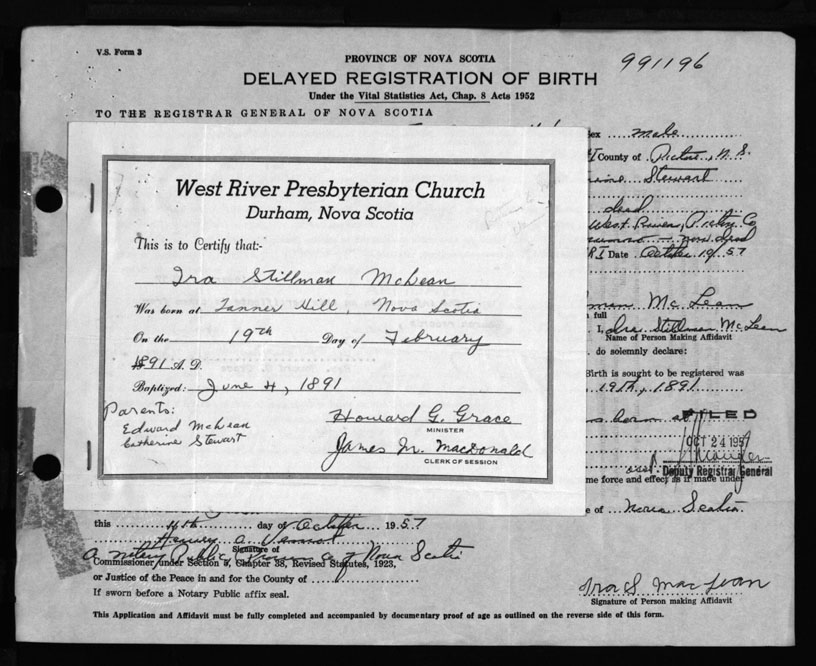 V.S. Form 3
PROVINCE OF NOVA SCOTIA
991196
DELAYED REGISTRATION OF BIRTH
Under the Vital Statistics Act, Chap. 8 Acts 1952
TO THE REGISTRAR GENERAL OF NOVA SCOTIA
ex male
County of Pictou, N.S.
Stewart
dead
West River, Pictou Co
now dead
Date October 19 57
McLean
full
I, Ira Stillman McLean
Name of Person Making Affidavit
do solemnly declare:
Birth is sought to be registered was
19th, 1891
born at
FILED
OCT 24 1957
Deputy Registrar General
me force and effect as if made under
e of Nova Scotia
West River Presbyterian Church
Durham, Nova Scotia
This is to Certify that:-
Ira Stillman McLean
Was born at Tanner Hill, Nova Scotia
On the 19th Day of February
1891 A.D.
Baptized: June 4, 1891
Parents:
Edward McLean
Catherine Stewart
Howard G. Grace
MINISTER
James M. MacDonald
CLERK OF SESSION
this 4th day of October 1957
Henry A.
Signature of
A Notary Public Province of Nova Scotia
Commissioner under Section 5, Chapter 38, Revised Statutes, 1923,
or Justice of the Peace in and for the County of
If sworn before a Notary Public affix seal.
Ira S MacLean
Signature of Person making Affidavit
This Application and Affidavit must be fully completed and accompanied by documentary proof of age as outlined on the reverse side of this form.